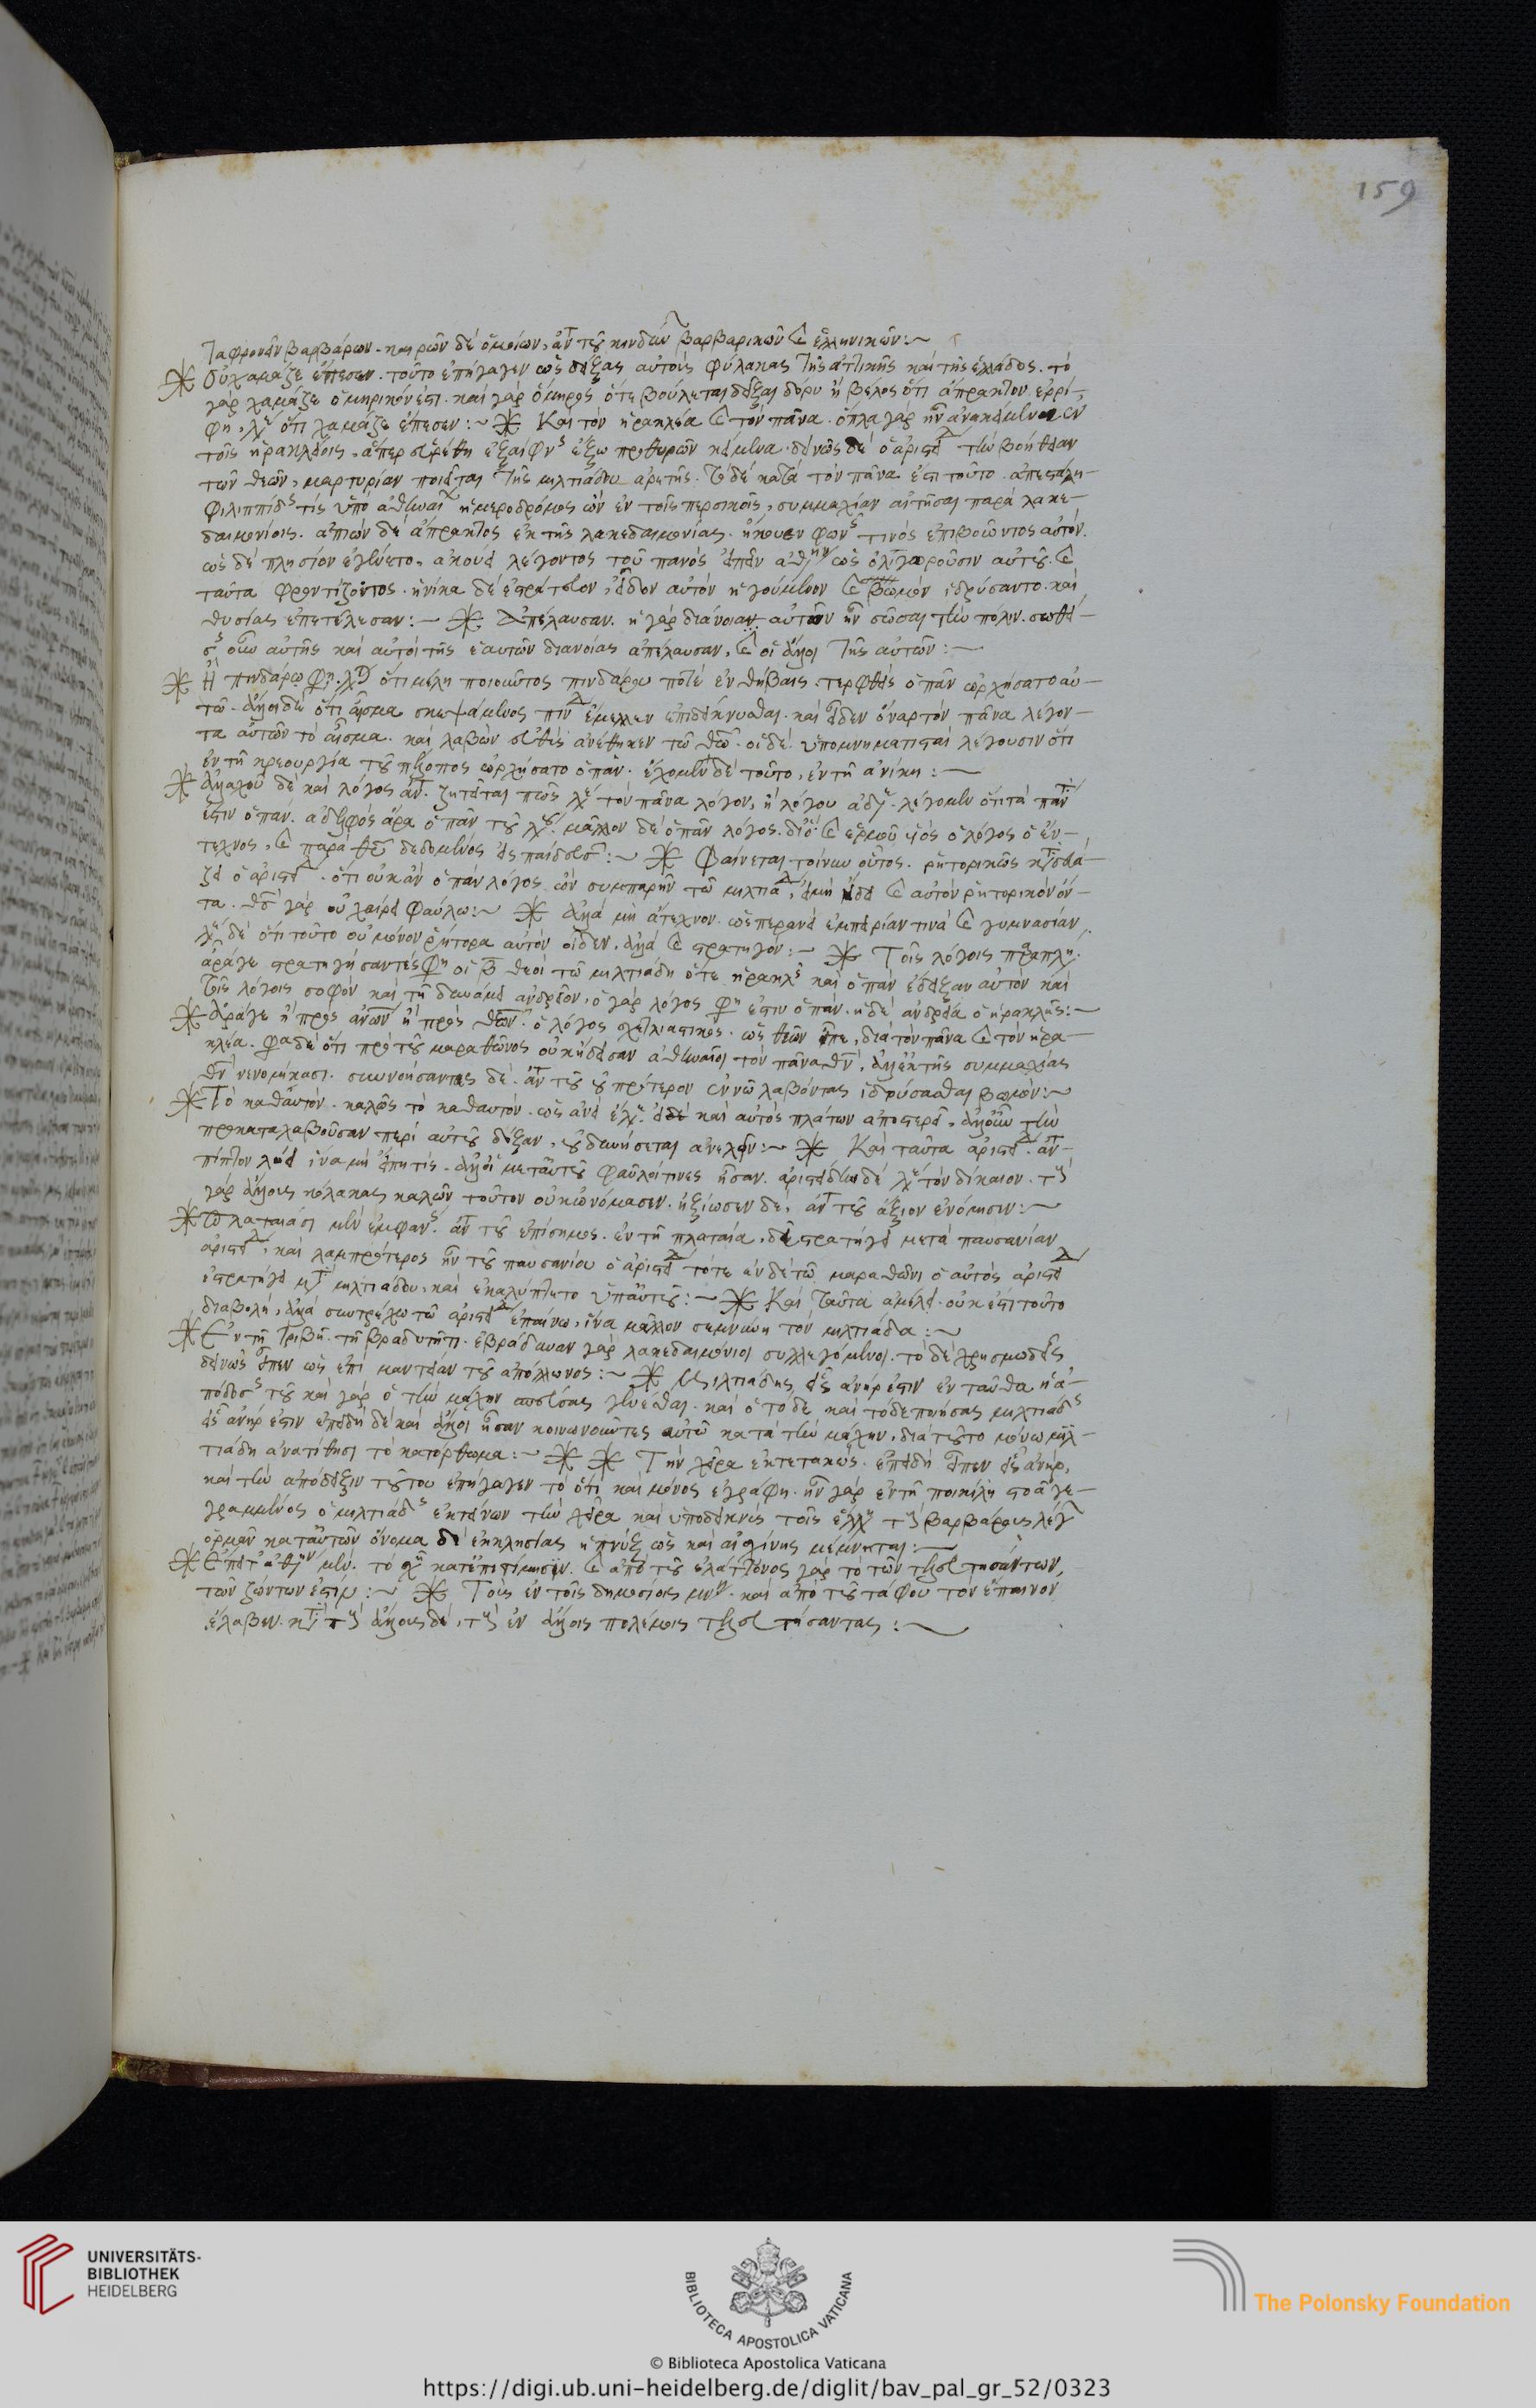 159
τὰ φρονεῖν βαρβάρων. καιρῶν δὲ ὁμοίων, ἀντὶ τοῦ κινδύνων βαρβαρικῶν καὶ ἑλληνικῶν:~
Οὐ χαμάζε ἔπεσεν. τοῦτο ἐπήγαγεν ὡς δείξας αὐτοὺς φύλακας τῆς ἀττικῆς καὶ τῆς ἑλλάδος. τὸ
γὰρ χαμάζε ὁμηρικόν ἐστι. καὶ γὰρ ὅμηρος ὅτε βούλεται δεῖξαι δόρυ ἢ βέλος ὅτι ἄπρακτον ἐρρί-
φη, λέγει ὅτι χαμάζε ἔπεσεν:~ Καὶ τὸν ἡρακλέα καὶ τὸν πᾶνα. ὅπλα γὰρ ἦν ἀνακείμενα ἐν
τοῖς ἡρακλείοις, ἅπερ εὑρέθη ἐξαίφνης ἔξω προθυρῶν κείμενα. δεινῶς δὲ ὁ ἀριστείδης τὴν βοήθειαν
τῶν θεῶν, μαρτυρίαν ποιεῖται τῆς μιλτιάδου ἀρετῆς. τὸ δὲ κατὰ τὸν πᾶνα ἐστὶ τοῦτο. ἀπεστάλη
φιλιππίδης τίς ὑπὸ ἀθηναίων ἡμεροδρόμος ὢν ἐν τοῖς περσικοῖς, συμμαχίαν αἰτῆσαι παρὰ λακε-
δαιμονίοις. ἀπιὼν δὲ ἄπρακτος ἐκ τῆς λακεδαιμονίας. ἤκουεν φωνῆς τινὸς ἐπιβοῶντος αὐτόν.
ὡς δὲ πλησίον ἐγένετο, ἀκούει λέγοντος τοῦ πανὸς εἰπεῖν ἀθηναίοις ὡς ὀλιγωροῦσιν αὐτοῦ. καὶ
ταῦτα φροντίζοντος. ἡνίκα δὲ ἐστράτευον, εἶδον αὐτὸν ἡγούμενον καὶ βωμὸν ἱδρύσαντο. καὶ
θυσίας ἐπετέλεσαν:~ Ἀπέλαυσαν. ἡ γὰρ διάνοια αὐτῶν ἦν σῶσαι τὴν πόλιν. σωθεί-
σης οὖν αὐτῆς καὶ αὐτοὶ τῆς ἑαυτῶν διανοίας ἀπέλαυσαν, καὶ οἱ ἄλλοι τῆς αὐτῶν:~
Ἢ πινδάρω φησὶ. λέγεται ὅτι μέλη ποιοῦντος πινδάρου ποτὲ ἐν θήβαις. τερφθεὶς ὁ πᾶν ὠρχήσατο αὐ-
τῶ. ἄλλοι δὲ ὅτι ἆσμα σκεψάμενος πίνδαρος ἔμελλεν ἐπιδείκνυσθαι. καὶ εἶδεν ὄναρ τὸν πᾶνα λέγον-
τα αὐτῶν τὸ ἆσμα. καὶ λαβὼν εὐθὺς ἀνέθηκεν τῶ θεῶ. οἱ δὲ ὑπομνηματισταὶ λέγουσιν ὅτι
ἐν τῆ κρεουργία τοῦ πέλοπος ὠρχήσατο ὁ πᾶν. ἔχομεν δὲ τοῦτο, ἐν τῆ
Ἀλλαχοῦ δὲ καὶ λόγος ζητεῖται πῶς λέγει τὸν πᾶνα λόγον, ἢ λόγου ἀδελφόν. λέγομεν ὅτι τὰ πάντα
ἐστιν ὁ πᾶν. ἀδελφὸς ἄρα ὁ πᾶν τοῦ λόγου. μᾶλλον δὲ ὁ πᾶν λόγος. διὸ καὶ ἑρμοῦ υἱὸς ὁ λόγος ὁ ἔν-
τεχνος, καὶ παρὰ θεοῦ δεδομένος εἰς παίδευσιν:~ Φαίνεται τοίνυν οὗτος. ῥητορικῶς
ζει ὁ ἀριστείδης. ὅτι οὐκ ἂν ὁ πᾶν λόγος ὢν συμπαρῆν τῶ μιλτιάδη, εἰ μὴ ἤδει καὶ αὐτὸν ῥητορικὸν ὄν-
τα. θεὸς γὰρ οὐ χαίρει φαύλω:~ Ἀλλὰ μὴ ἄτεχνον. ὡσπερανεὶ ἐμπειρίαν τινὰ καὶ γυμνασίαν.
λέγει δὲ ὅτι τοῦτο οὐ μόνον ῥήτορα αὐτὸν οἶδεν, ἀλλὰ καὶ στρατηγόν:~ Τοῖς λόγοις
ἆράγε στρατηγήσαντές φησιν οἱ β θεοὶ τῶ μιλτιάδη ὅτε ἡρακλῆς καὶ ὁ πᾶν ἔδειξαν αὐτὸν καὶ
τοῖς λόγοις σοφὸν καὶ τῆ δυνάμει ἀνδρεῖον, ὁ γὰρ λόγος φησὶν ἐστιν ὁ πᾶν. ἡ δὲ ἀνδρεία ὁ ἡρακλῆς:~
Ἆράγε ἢ πρὸς ἀνθρώπων ἢ πρὸς θεῶν. ὁ λόγος σχετλιαστικός. ὡς θεῶν εἶπε, διὰ τὸν πᾶνα καὶ τὸν ἡρα-
κλέα. φασὶ δὲ ὅτι πρὸ τοῦ μαραθῶνος οὐκ ἤδεσαν ἀθηναῖοι τὸν πᾶνα θεόν, ἀλλ' ἐκ τῆς συμμαχίας
θεὸν νενομήκασι. συννοήσαντας δὲ ἀντὶ τοῦ οὐ πρότερον ἐν νῶ λαβόντας ἱδρύσασθαι βωμόν:~
Τὸ καθαυτόν. καλῶς τὸ καθαυτόν. ὡς ἀνεὶ ἔλεγε. εἰ δὲ καὶ αὐτὸς πλάτων ἀποστερεῖ, ἀλλ' οὖν τὴν
προκαταλαβοῦσαν περὶ αὐτοῦ δόξαν, οὐ δυνήσεται ἀνελεῖν:~ Καὶ ταῦτα ἀριστείδης. ἀντι-
πίπτον λύει ἵνα μὴ εἴπη τίς. ἀλλ' οἱ μετ' αὐτοῦ φαῦλοί τινες ἦσαν. ἀριστείδην δὲ λέγει τὸν δίκαιον. τοὺς
γὰρ ἄλλους κόλακας καλῶν τοῦτον οὐκ ὠνόμασεν. ἠξίωσεν δὲ, ἀντὶ τοῦ ἄξιον ἐνόμησεν:~
Πλαταιάσι μὲν ἐμφανὴς. ἀντὶ τοῦ ἐπίσημος. ἐν τῆ πλαταία, δὲ στρατήγει μετὰ παυσανίαν
ἀριστείδης, καὶ λαμπρότερος ἦν τοῦ παυσανίου ὁ ἀριστείδης τότε ἐν δὲ τῶ μαραθῶνι ὁ αὐτὸς ἀριστείδης
ἐστρατήγει μετὰ μιλτιάδου, καὶ ἐκαλύπτετο ὑπ' αὐτοῦ:~ Καὶ ταῦτα ἀμέλει. οὐκ ἐστι τοῦτο
διαβολή, ἀλλὰ συντρέχω τῶ ἀριστείδου ἐπαίνω, ἵνα μᾶλλον σεμνύνη τὸν μιλτιάδα:~
Ἐν τῆ τριβῆ. τῆ βραδυτῆτι. ἐβράδυναν γὰρ λακεδαιμόνιοι συλλεγόμενοι. τὸ δὲ χρησμωδεῖς
δεινῶς εἶπεν ὡς ἐπὶ μαντείαν τοῦ ἀπόλλωνος:~ Μιλτιάδης εἷς ἀνήρ ἐστιν ἐνταῦθα ἡ ἀ-
πόδοσις τοῦ καὶ γὰρ ὁ τὴν μάχην σπεύσας γενέσθαι. καὶ ὁ τόδε καὶ τόδε ποιήσας μιλτιάδης
εἷς ἀνήρ ἐστιν ἐπειδὴ δὲ καὶ ἄλλοι ἦσαν κοινωνοῦντες αὐτῶ κατὰ τὴν μάχην, διὰ τοῦτο μόνω μιλ-
τιάδη ἀνατίθησι τὸ κατόρθωμα:~ Τὴν χεῖρα ἐκτετακώς. ἐπειδὴ εἶπεν εἷς ἀνήρ,
καὶ τὴν ἀπόδειξιν τούτου ἐπήγαγεν τὸ ὅτι καὶ μόνος ἐγράφη. ἦν γὰρ ἐν τῆ ποικίλη στοᾶ γε-
γραμμένος ὁ μιλτιάδης ἐκτείνων τὴν χεῖρα καὶ ὑποδεικνὺς τοῖς ἕλλησι τοὺς βαρβάρους λέγων
ὁρμᾶν κατ' αὐτῶν ὄνομα δὲ ἐκκλησίας ἡ πνὺξ ὡς καὶ αἰσχίνης μέμνηται:~
τὸ σχῆμα κατ' ἐπιτίμησιν. καὶ ἀπὸ τοῦ ἐλάττονος γὰρ τὸ τῶν τελευτησάντων,
τῶν ζώντων ἐστιν:~ Τοὺς ἐν τοῖς δημοσίοις μνήμασι. καὶ ἀπὸ τοῦ τάφου τὸν ἔπαινον
ἔλαβεν. τοὺς ἄλλους δὲ, τοὺς ἐν ἄλλοις πολέμοις τελευτήσαντας:~
UNIVERSITÄTS-
BIBLIOTHEK
HEIDELBERG
BIBLIOTECA APOSTOLICA VATICANA
The Polonsky Foundation
© Biblioteca Apostolica Vaticana
https://digi.ub.uni-heidelberg.de/diglit/bav_pal_gr_52/0323